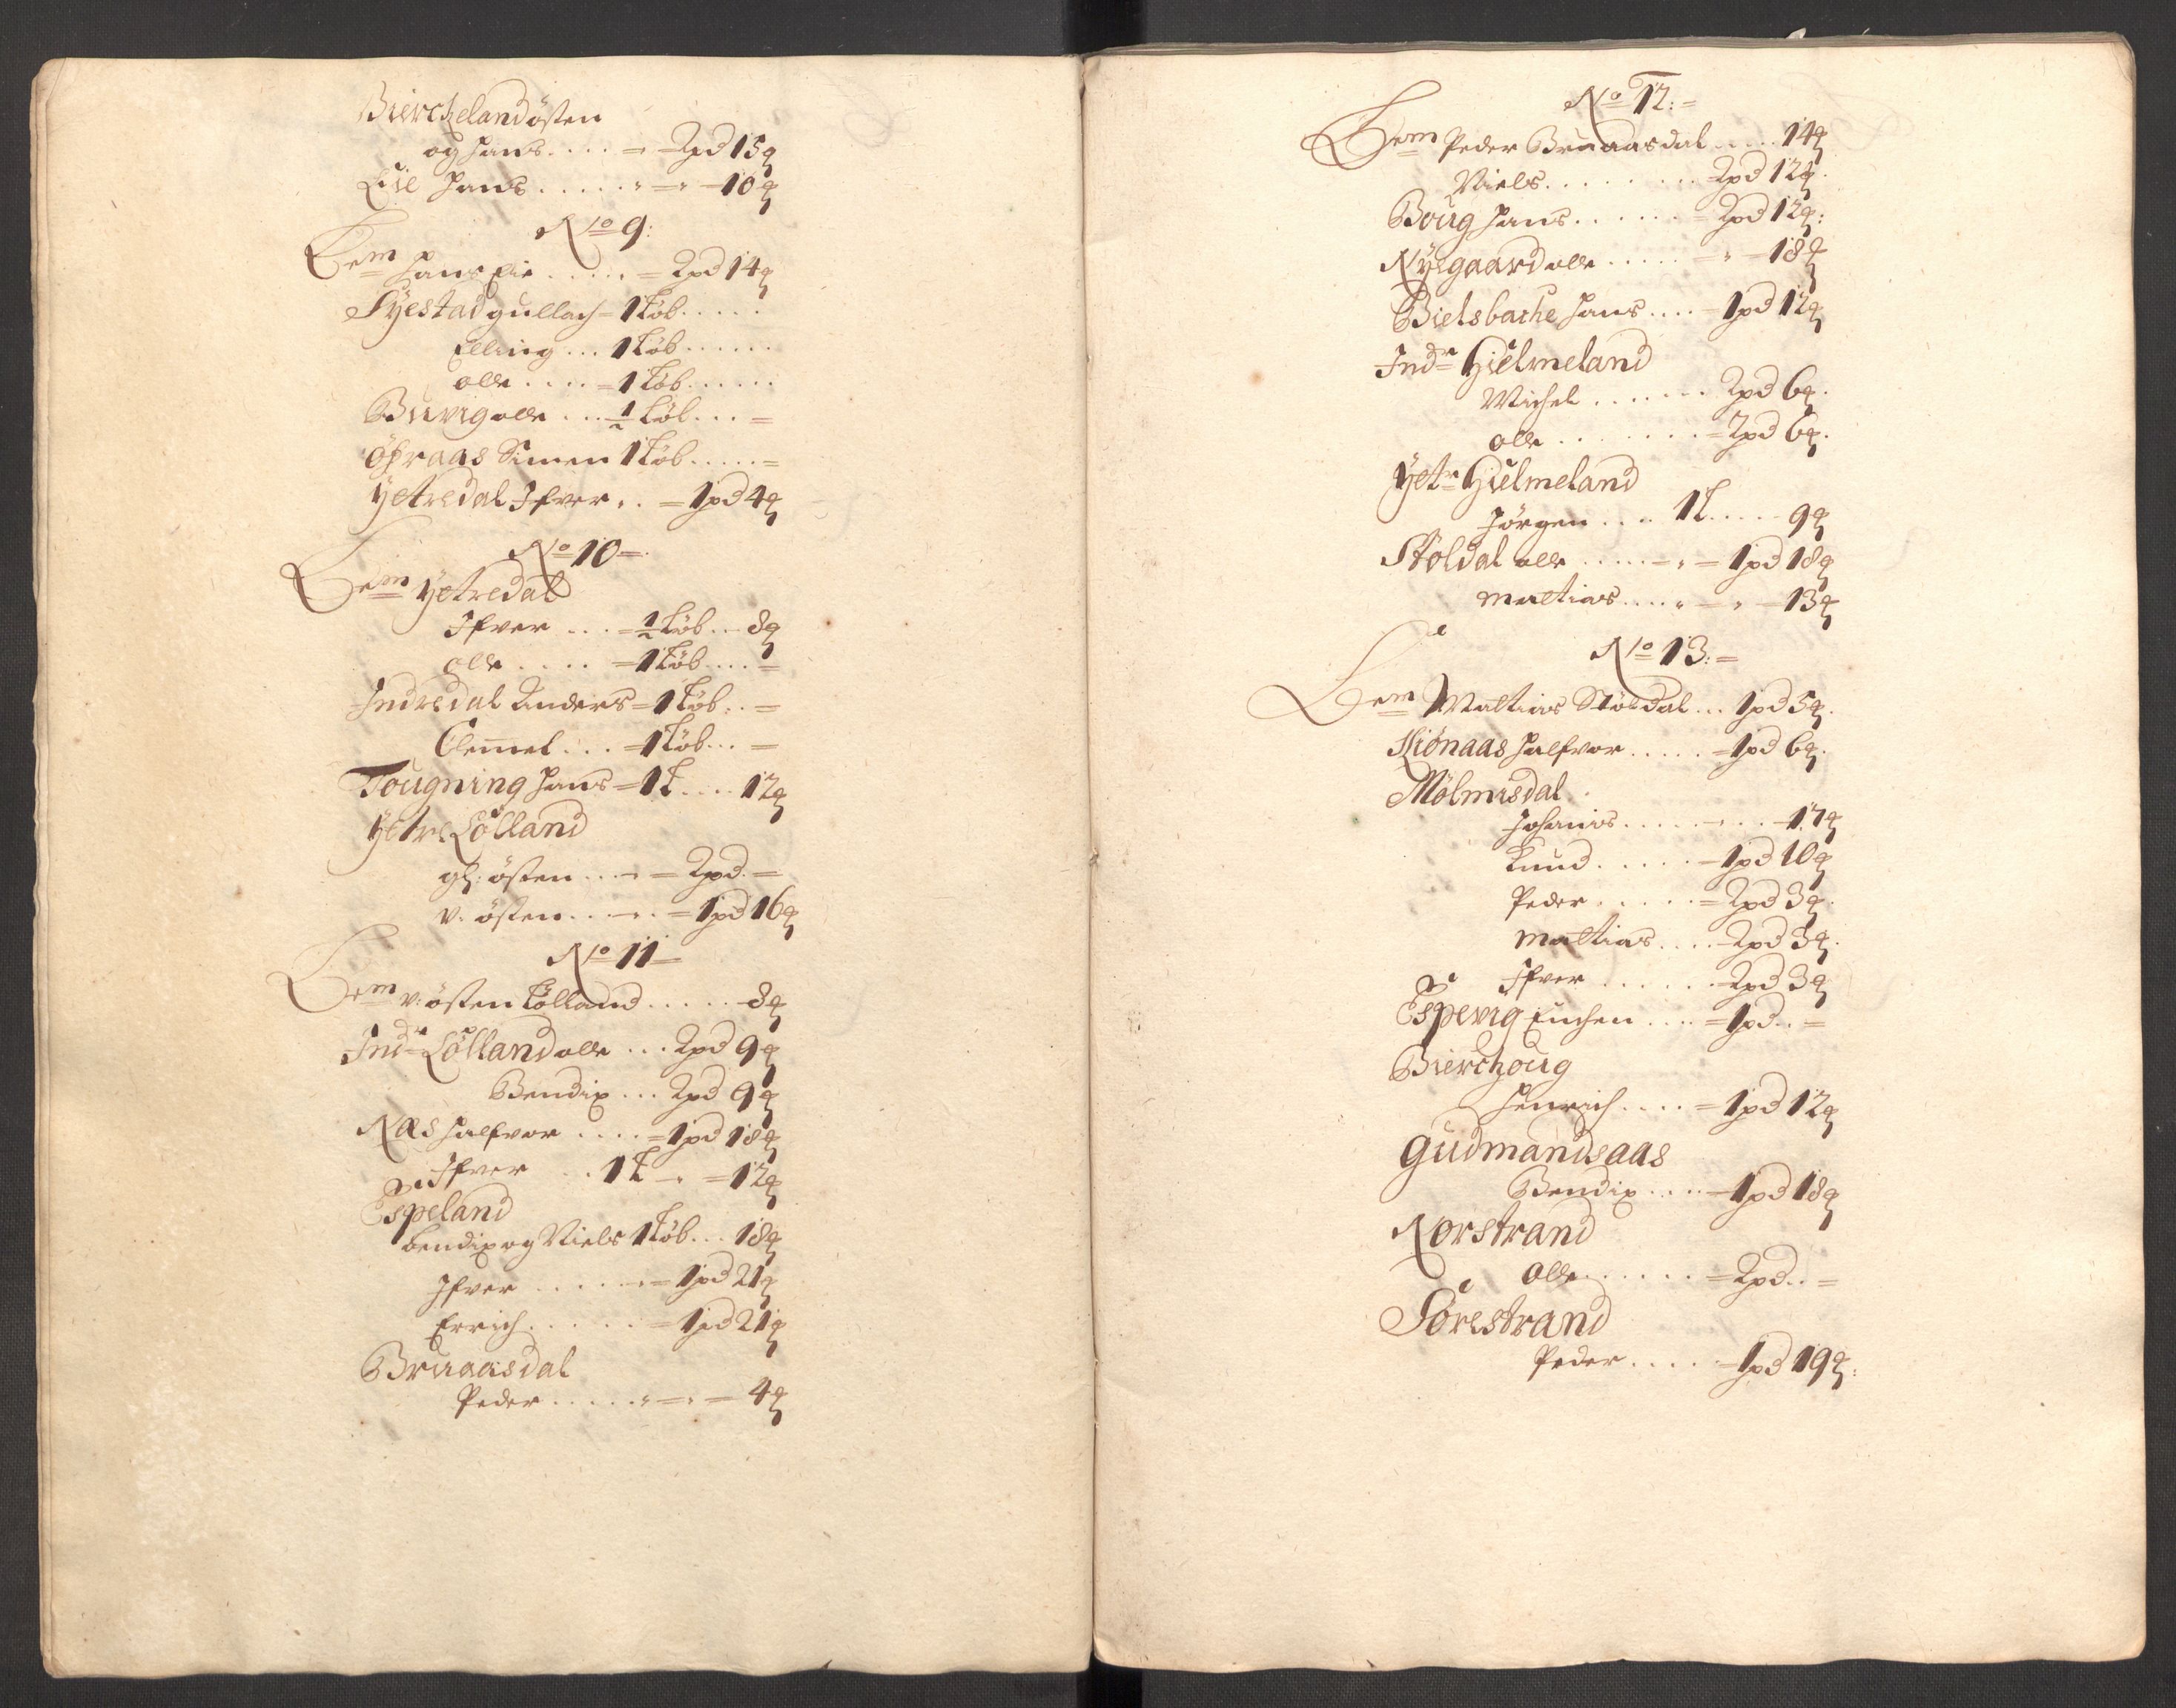 Bierchelandösten
og Hans ..... = 2pd 15q
Lie Hans ..... " = " - 10q
No 9:
Lem Hans Lie ..... = 2pd 14q
Syestad gullach = 1 Løb .....
Elling ... 1 Løb ......
olle .... = 1 Løb ......
Buvig olle ... 1/2 Løb ... =
Öfraas Simen 1 Løb ..... =
Yetredal Ifver .. = 1pd 4q
No 10 =
Lem Yetredal
Ifver ... = 1/2 Løb ... 8q
olle .... = 1 Løb .... =
Indredal Anders = 1 Løb .. =
Clemmet ... = 1 Løb ... =
Tougning Hans = 1 L .... 12q
Yetre Lölland
gl: östen ... - = 2pd. =
v. östen ... - . = 1pd 16q
No 11
Lem v: östen Lölland ..... 8q
Indr Lölland olle ... 2pd 9q
Bendix ... 2pd 9q
Næs Halfvor .... = 1pd 18q
Ifver .. 1 L - . = 12q
Espeland
bendix og Niels 1 Løb ... 18q
Ifver ..... = 1pd 21q
Errich ..... = 1pd 21q
Bruaasdal
Peder ..... " = " = 4q
No 12: =
Lem Peder Bruaasdal ..... 14q
Niels ......... 2pd 12q.
Boug Hans ...... = 2pd 12q:
Nyegaard olle ..... - " - 18q
Bielsbache Hans .... - 1pd 12q
Indr Hielmeland
Michel ....... 2pd 6q.
olle ....... = 2pd 6q.
Yetr Hielmeland
Jørgen .... 1 L ..... 9q
Støldal olle ..... - " = 1pd 18q
mattias .... " - " - 13q
No 13: =
Lem Mattias Støldal ... 1pd 5q.
Kiønaas Halfvor ..... = 1pd 6q.
Mölmisdal
Johanis ..... - ... 17q
Knud ..... - 1pd 10q
Peder ..... = 2pd 3q.
mattias .... - 2pd 3q.
Ifver ...... - 2pd 3q
Espevig Enchen .... = 1pd .. =
Bierchoug
Henrich .... = 1pd 12q
gudmandsaas
Bendix .... - 1pd 18q
Norstrand
olle ..... = 2pd .. =
Sörestrand
Peder .... - 1pd 19q: